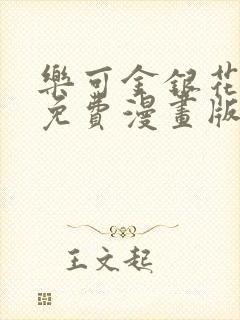 樂可金銀花
免費漫畫版
王文起